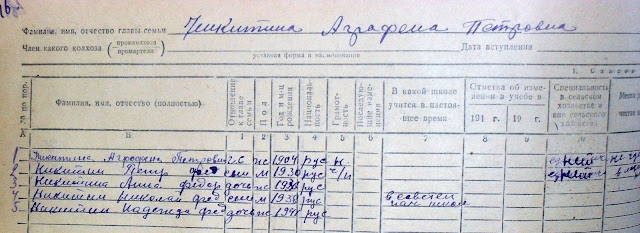 Фамилия, имя, отчество главы семьи Никитина Аграфена Петровна
Член какого колхоза (промколхоза промартели)
уставная форма и наименование
Дата вступления
I. Список
№№ по пор. Фамилия, имя, отчество (полностью) Отношение к главе семьи Пол Год и м-ц рождения Национальность Грамотность Последующие изменения В какой школе учится в настоящее время Отметка об изменении в учебе в 194 г. 19 г. Специальность в сельском хозяйстве и вне сельского хозяйства Место
В 1 2 3 4 5 6 7 8 9 10
1 Никитина Аграфена Петровн г.с ж 1904 рус н
2 Никитин Петр фед сын м 1930 рус
3 Никитина Анна федор дочь ж рус
4 Никитин Николай фед сын м 1938 рус
5 Никитин Надежда фед дочь ж рус